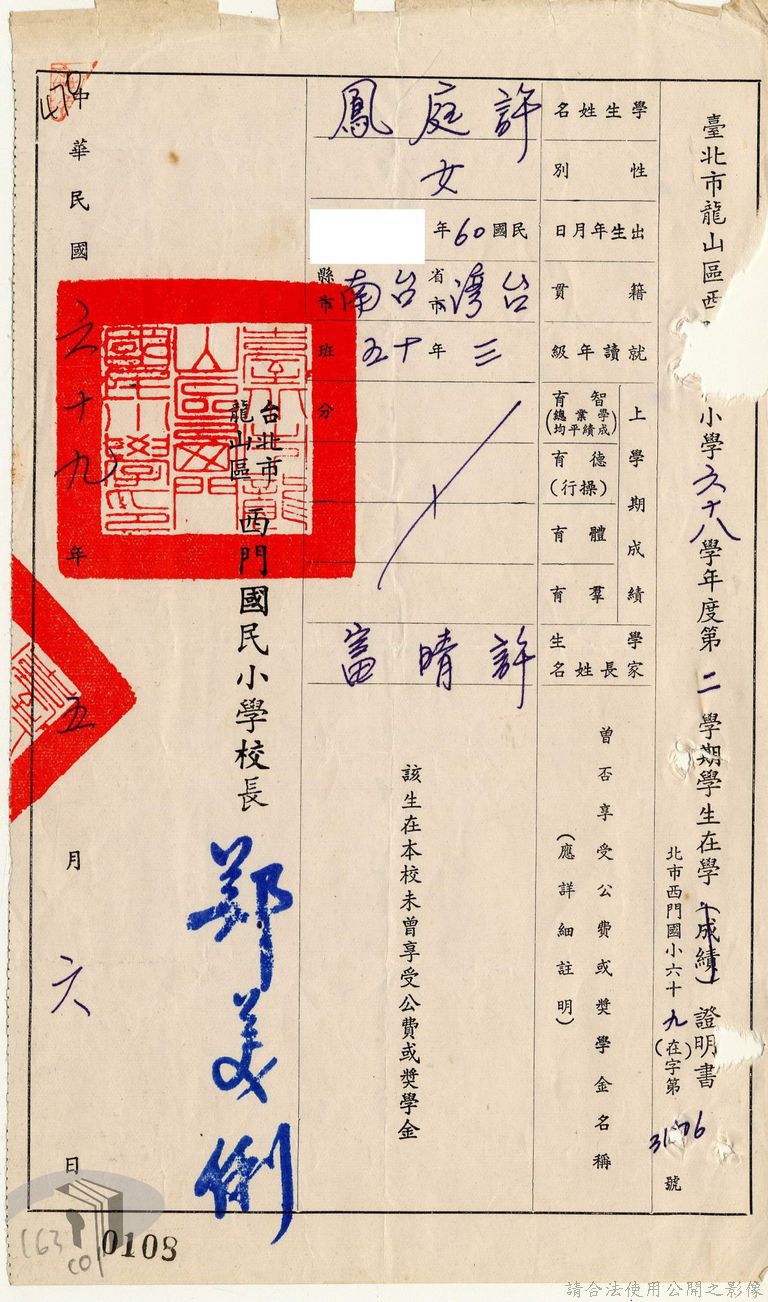 臺北市龍山區西
小學六十八學年度第二學期學生在學(成績)證明書
北市西門國小六十九(在)字第
號
學生姓名
許庭鳳
性別
女
出生年月日
民國60年
籍貫
台灣省市台南縣市
就讀年級
三年十五班
上學期成績
智育(學業成績總平均)
分
德育(操行)
體育
羣育
學生家長姓名
許晴富
曾否享受公費或獎學金名稱
(應詳細註明)
該生在本校未曾享受公費或獎學金
台北市龍山區西門國民小學校長
鄭美俐
中華民國六十九年五月六日
470
163
001
0108
請合法使用公開之影像